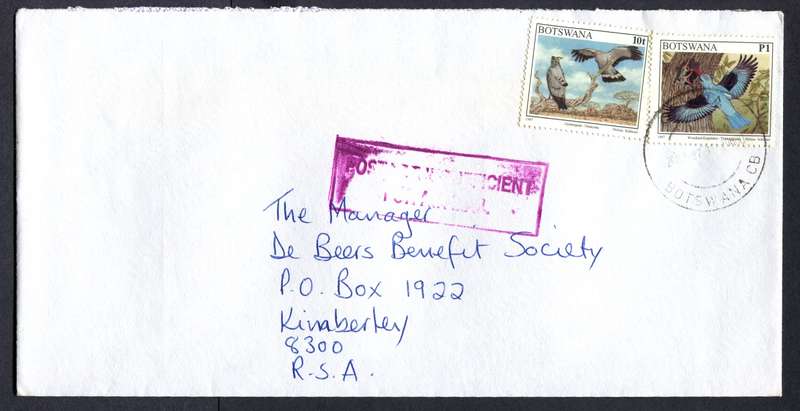 BOTSWANA 10t
BOTSWANA P1
1997
1997
INSUFFICIENT
The Manager
De Beers Benefit Society
P.O. Box 1922
Kimberley
8300
R.S.A.
BOTSWANA CB